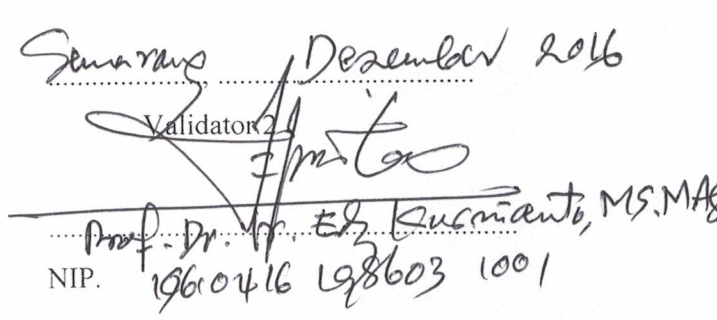 Semarang, Desember 2016
Validator 2
Prof. Dr. Ir. Edy Kurnianto, MS. MAg
NIP. 19610416 198603 1001